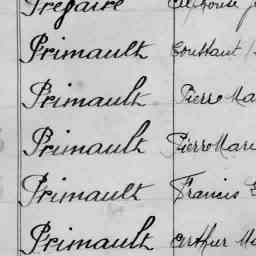 Trégaire Alphonse
Primault Constant
Primault Pierre Ma
Primault Pierre Mari
Primault Francis
Primault Arthur Ma